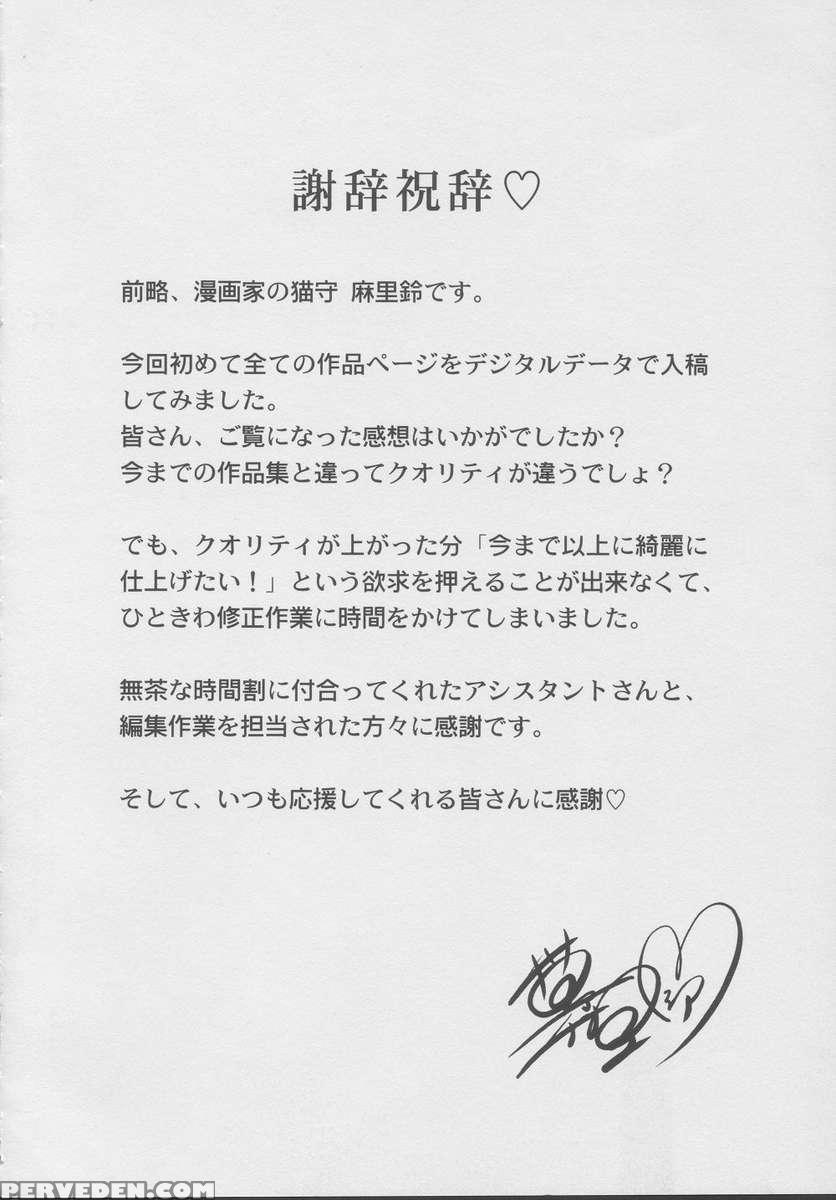 謝辞祝辞♡
前略、漫画家の猫守 麻里鈴です。
今回初めて全ての作品ページをデジタルデータで入稿
してみました。
皆さん、ご覧になった感想はいかがでしたか？
今までの作品集と違ってクオリティが違うでしょ？
でも、クオリティが上がった分「今まで以上に綺麗に
仕上げたい！」という欲求を押えることが出来なくて、
ひときわ修正作業に時間をかけてしまいました。
無茶な時間割に付合ってくれたアシスタントさんと、
編集作業を担当された方々に感謝です。
そして、いつも応援してくれる皆さんに感謝♡
PERVEDEN.COM